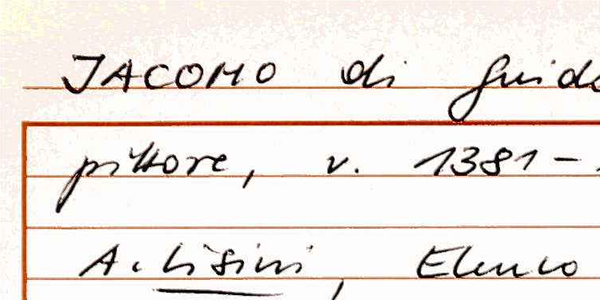 JACOMO di Guido
pittore, v. 1381-
A. Lisini, Elenco